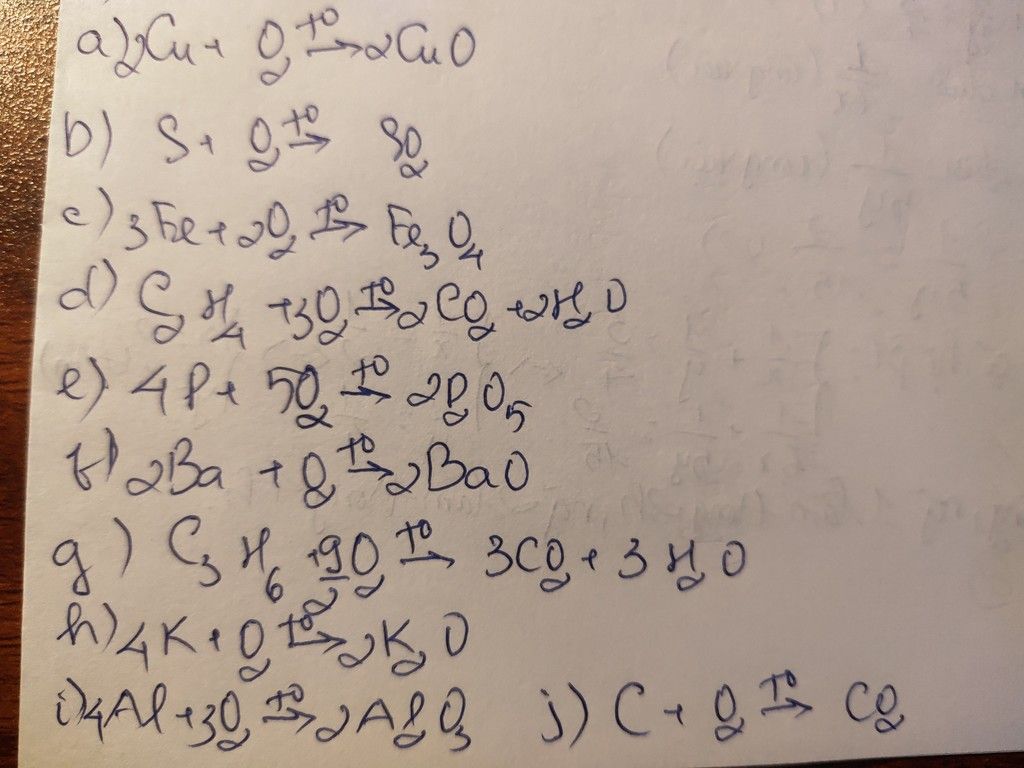 a) 2Cu + O₂ →t° 2CuO
b) S + O₂ →t° SO₂
c) 3Fe + 2O₂ →t° Fe₃O₄
d) C₂H₄ + 3O₂ →t° 2CO₂ + 2H₂O
e) 4P + 5O₂ →t° 2P₂O₅
f) 2Ba + O₂ →t° 2BaO
g) C₃H₆ + 9/2O₂ →t° 3CO₂ + 3H₂O
h) 4K + O₂ →t° 2K₂O
i) 4Al + 3O₂ →t° 2Al₂O₃ j) C + O₂ →t° CO₂